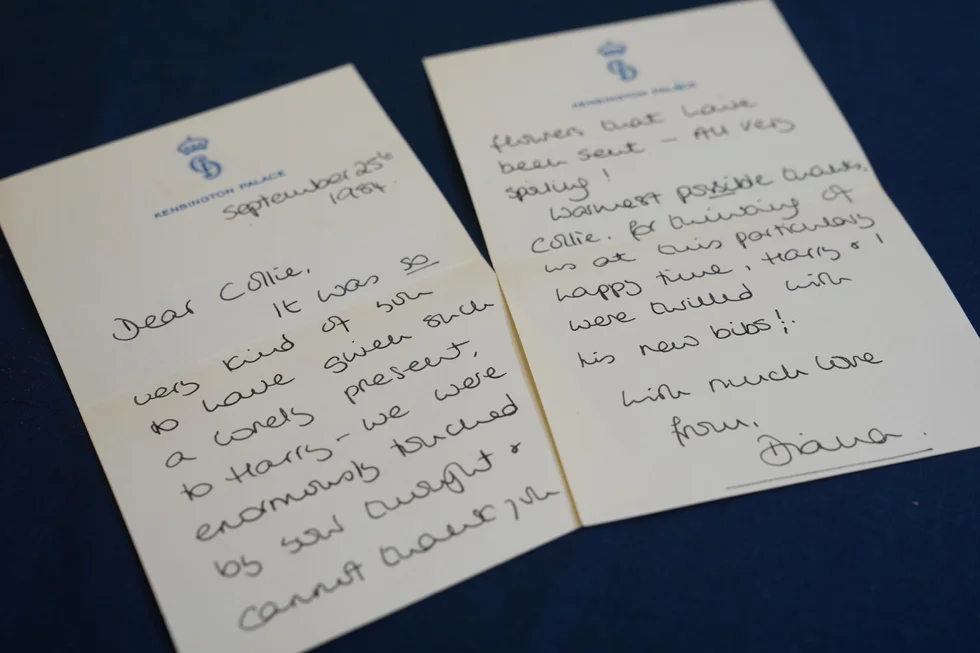 KENSINGTON PALACE
September 25th
1984
Dear Collie,
It was so
very kind of you
to have given such
a lovely present,
to Harry - we were
enormously touched
by your thought &
cannot thank you
KENSINGTON PALACE
flowers that have
been sent - All very
spoiling!
Warmest possible thanks,
Collie, for thinking of
us at this particularly
happy time, Harry & I
were thrilled with
his new bibs!
with much love
from,
Diana.